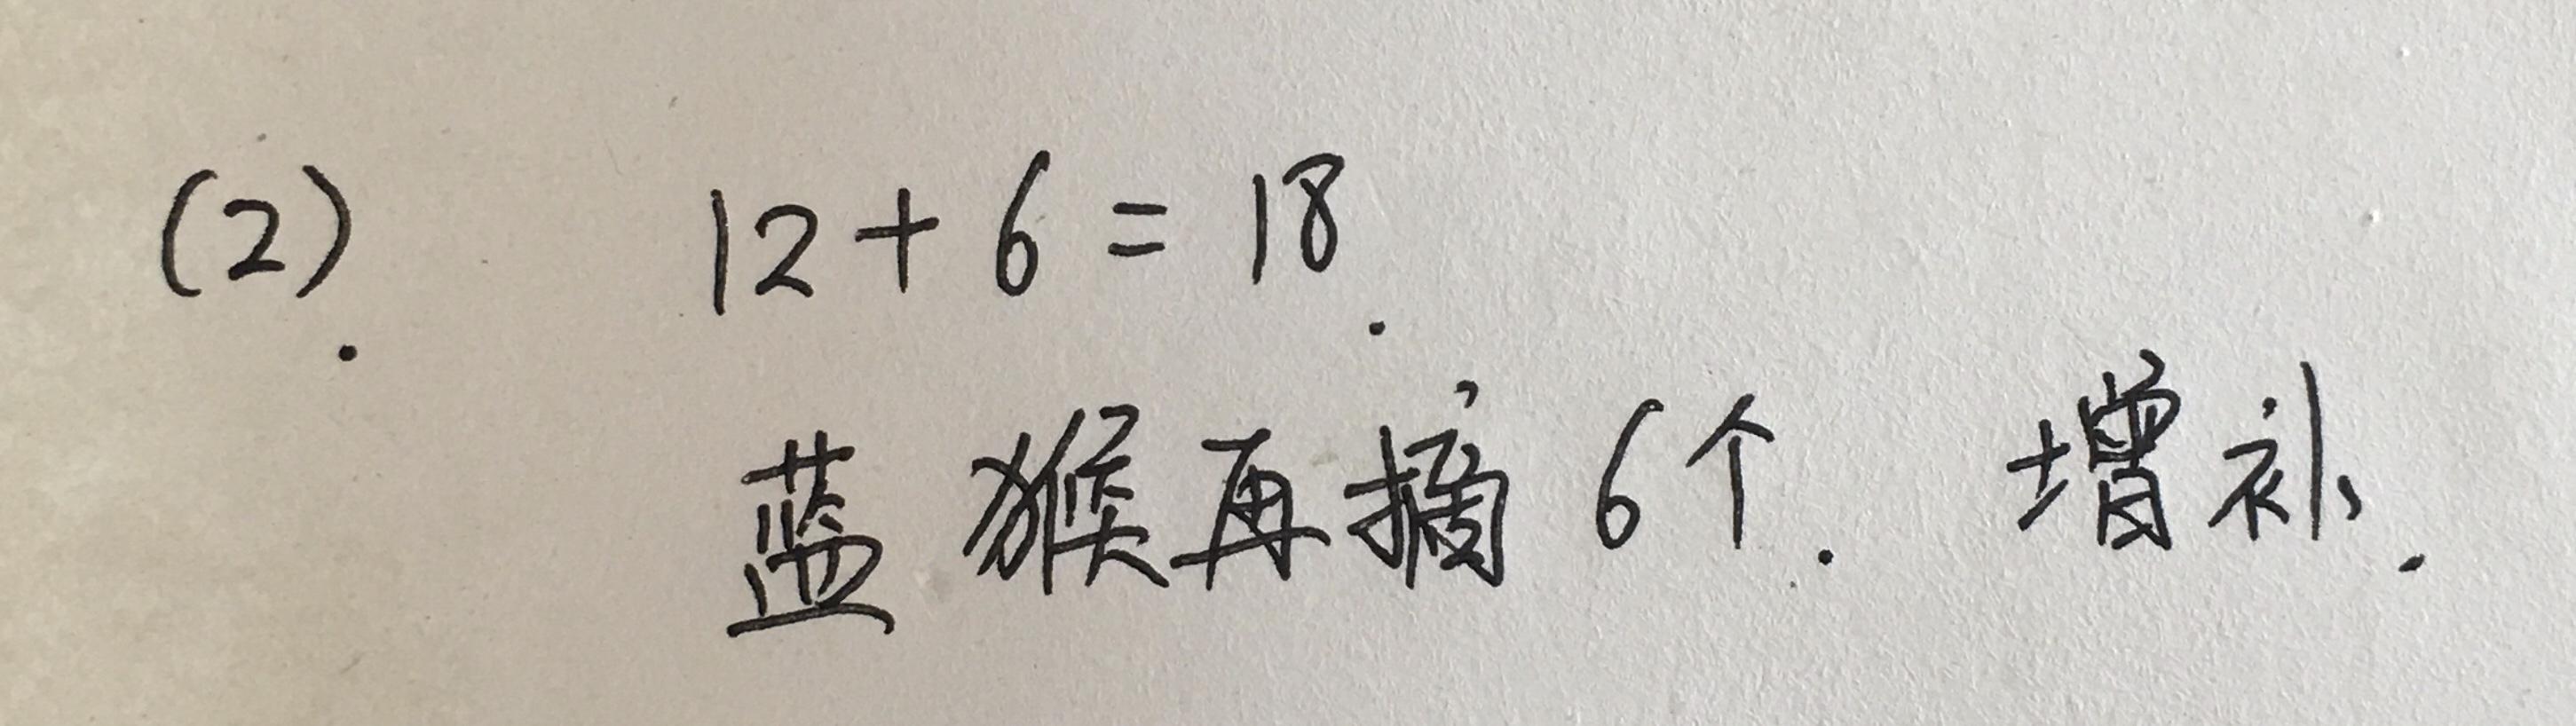 (2). 12+6=18.
蓝猴再摘6个. 增补.